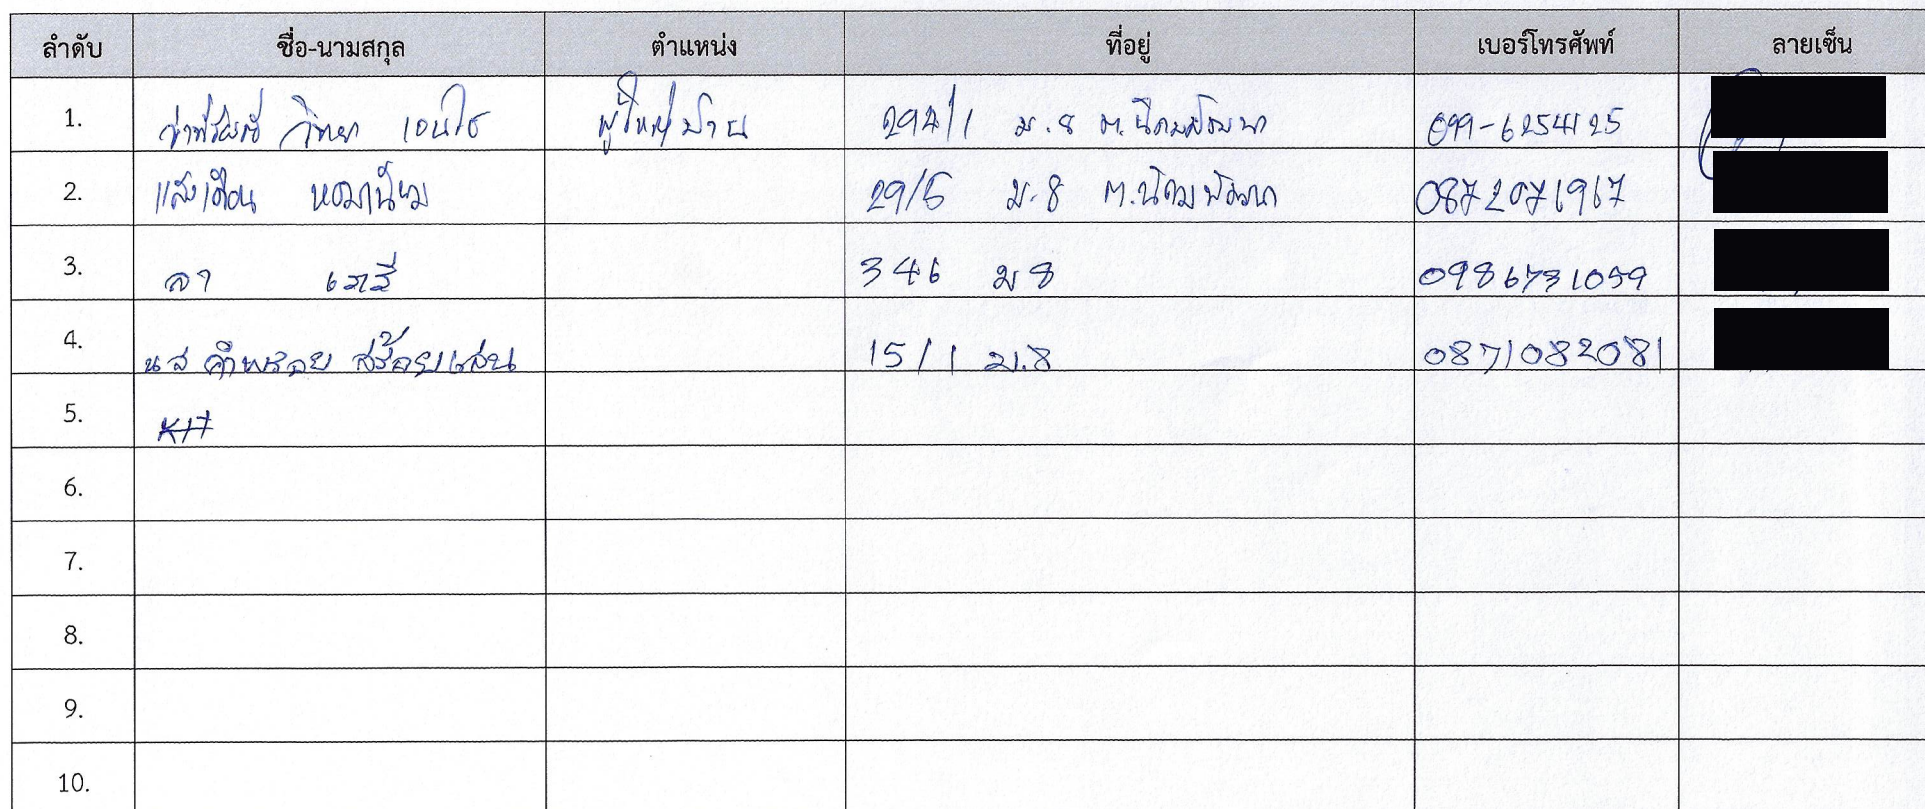 ลำดับ ชื่อ-นามสกุล ตำแหน่ง ที่อยู่ เบอร์โทรศัพท์ ลายเซ็น
1. ว่าที่ร้อยตรี วิทยา ผู้ใหญ่บ้าน 294/1 ม.8 ต.นิคมพัฒนา 099-6254125
2. แสงเดือน หอมเนียม 29/5 ม.8 ต.นิคมพัฒนา 0872071967
3. ลา 346 ม 8 0986731059
4. น ส คำพลอย สร้อยแสน 15/1 ม.8 0871082081
5.
6.
7.
8.
9.
10.